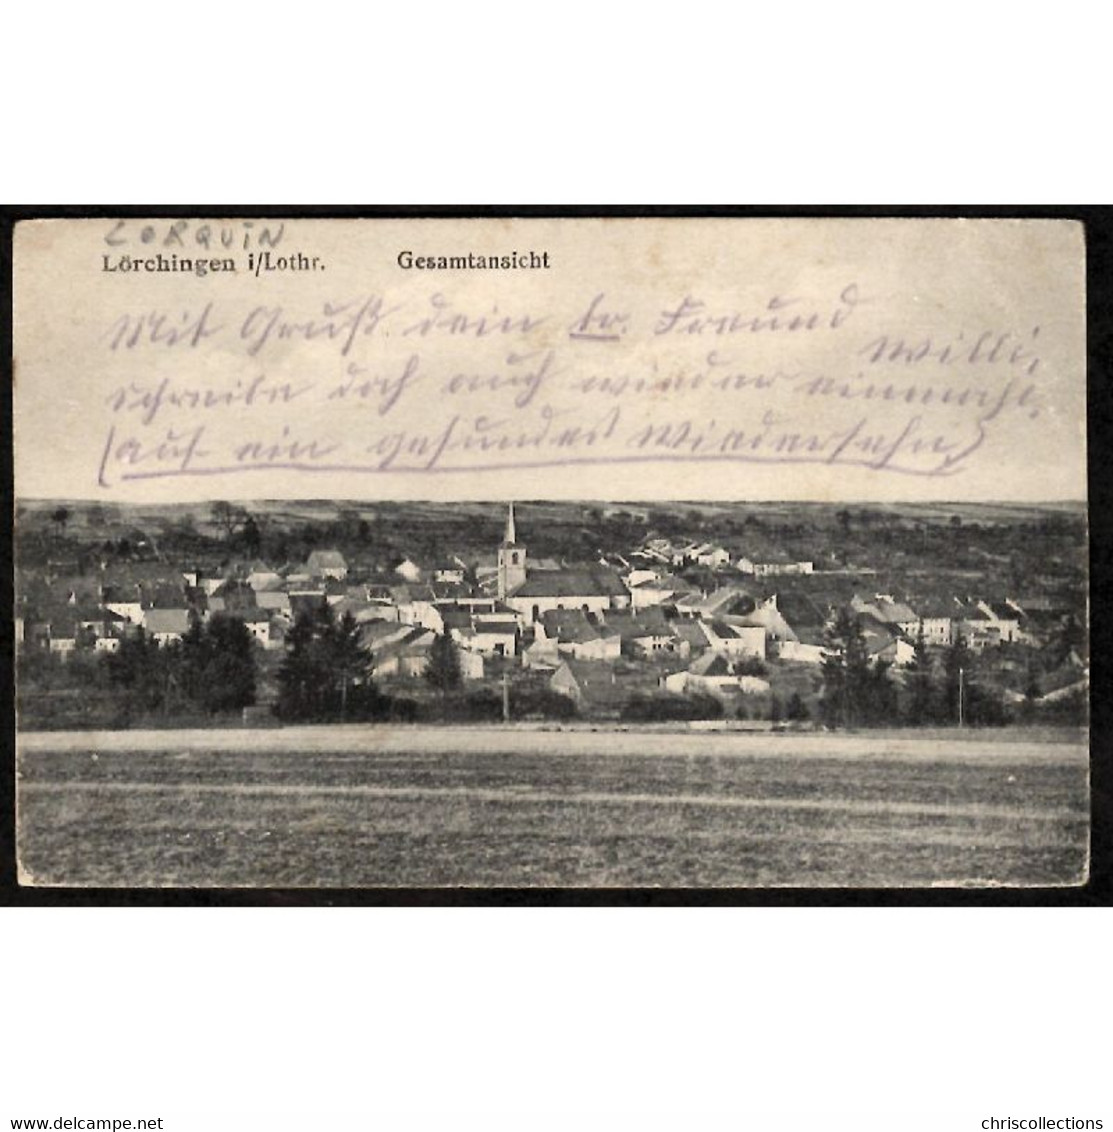 LORQUIN
Lörchingen i/Lothr. Gesamtansicht
Mit Gruß dein tr. Freund
Willi,
schreibe doch auch wieder einmahl,
(auf ein gesundes Wiedersehn)
delcampe.net
chriscollections